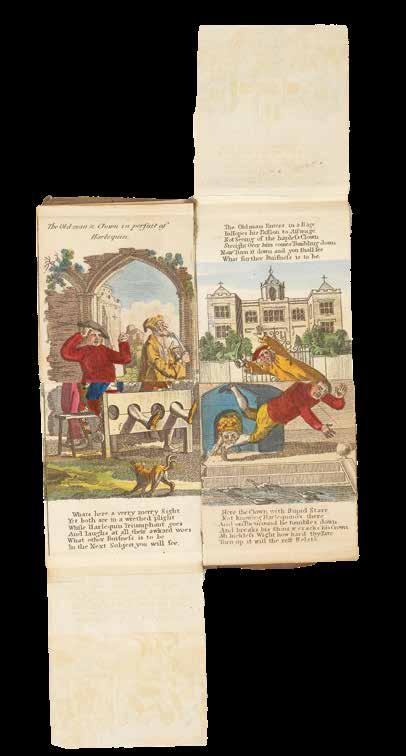 The Old man & Clown in persuit of
Harlequin
Whats here a verry merry Sight
Yet both are in a wrethed plight
While Harlequin Triumphant goes
And laughs at all their awkard woes
What other Buisness is to be
In the Next Subject you will see.
The Old man Enters in a Rage
In Hopes his Passion to Asswage
Not Seeing of the hapless Clown
Straight Over him comes Tumbling down
Now Turn it down and you shall see
What further Buisness is to be.
Here the Clown with Stupid Stare
Not knowing Harlequin's there
And on The Ground he tumbles down
And breaks his Shins & cracks his Crown
Ah luckless Wight how hard thy Fate
Turn up it will the rest Relate